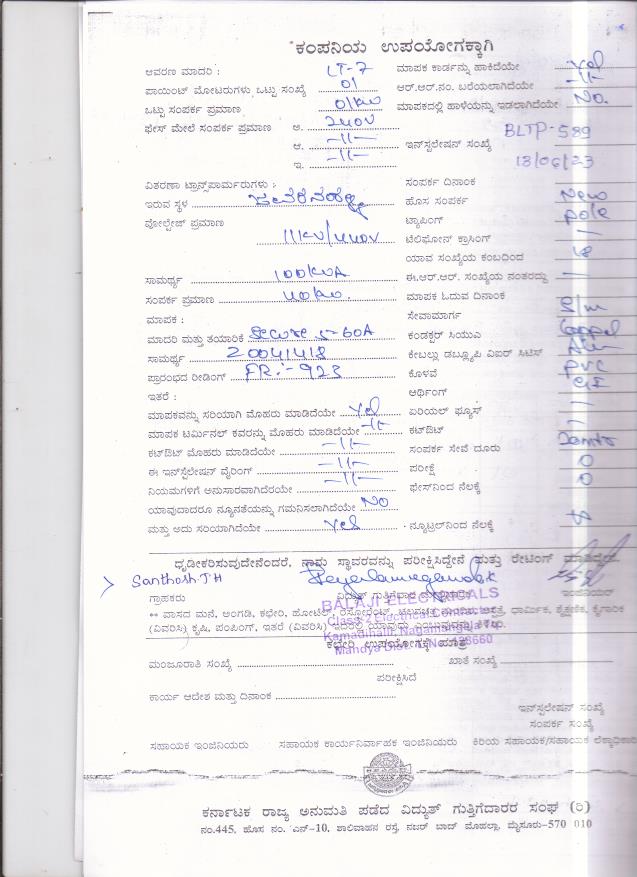 ಕಂಪನಿಯ ಉಪಯೋಗಕ್ಕಾಗಿ
ಆವರಣ ಮಾದರಿ : LT-7 ಮಾಪಕ ಕಾರ್ಡನ್ನು ಹಾಕಿದೆಯೇ Yes
ಪಾಯಿಂಟ್ ಮೋಟರುಗಳು ಒಟ್ಟು ಸಂಖ್ಯೆ 01 ಆರ್.ಆರ್.ನಂ. ಬರೆಯಲಾಗಿದೆಯೇ -11-
ಒಟ್ಟು ಸಂಪರ್ಕ ಪ್ರಮಾಣ 01KW ಮಾಪಕದಲ್ಲಿ ಹಾಳೆಯನ್ನು ಇಡಲಾಗಿದೆಯೇ No.
ಫೇಸ್ ಮೇಲೆ ಸಂಪರ್ಕ ಪ್ರಮಾಣ ಅ. 240V
BLTP-589
ಆ. -11- ಇನ್‌ಸ್ಟಲೇಷನ್ ಸಂಖ್ಯೆ
ಇ. -11- 13/06/23
ವಿತರಣಾ ಟ್ರಾನ್ಸ್‌ಪಾರ್ಮರುಗಳು : ಸಂಪರ್ಕ ದಿನಾಂಕ
ಇರುವ ಸ್ಥಳ ಹೊಸ ಸಂಪರ್ಕ New
ವೋಲ್ಟೇಜ್ ಪ್ರಮಾಣ ಟ್ಯಾಪಿಂಗ್ pole
11KV/440V ಟೆಲಿಫೋನ್ ಕ್ರಾಸಿಂಗ್
ಯಾವ ಸಂಖ್ಯೆಯ ಕಂಬದಿಂದ
ಸಾಮರ್ಥ್ಯ 100KVA ಈ.ಆರ್.ಆರ್. ಸಂಖ್ಯೆಯ ನಂತರದ್ದು
ಸಂಪರ್ಕ ಪ್ರಮಾಣ 40KW. ಮಾಪಕ ಓದುವ ದಿನಾಂಕ
ಮಾಪಕ : ಸೇವಾಮಾರ್ಗ S/m
ಮಾದರಿ ಮತ್ತು ತಯಾರಿಕೆ 5-60A ಕಂಡಕ್ಟರ್ ಸಿಯುಎ
ಸಾಮರ್ಥ್ಯ 20041418 ಕೇಬಲ್ಲು ಡಬ್ಲ್ಯೂಪಿ ವಿಐರ್ ಸಿಟಿಸ್
ಪ್ರಾರಂಭದ ರೀಡಿಂಗ್ FR:-923 ಕೊಳವೆ PVC
ಇತರೆ : ಅರ್ಥಿಂಗ್ GI
ಮಾಪಕವನ್ನು ಸರಿಯಾಗಿ ಮೊಹರು ಮಾಡಿದೆಯೇ Yes ಏರಿಯಲ್ ಫ್ಯೂಸ್
ಮಾಪಕ ಟರ್ಮಿನಲ್ ಕವರನ್ನು ಮೊಹರು ಮಾಡಿದೆಯೇ -11- ಕಟ್‌ಔಟ್
ಕಟ್‌ಔಟ್ ಮೊಹರು ಮಾಡಿದೆಯೇ -11- ಸಂಪರ್ಕ ಸೇವೆ ದೂರು
ಈ ಇನ್‌ಸ್ಟೆಲೇಷನ್ ವೈರಿಂಗ್ -11- ಪರೀಕ್ಷೆ 0
ನಿಯಮಗಳಿಗೆ ಅನುಸಾರವಾಗಿದೆರೆಯೇ -11- ಫೇಸ್‌ನಿಂದ ನೆಲಕ್ಕೆ 0
ಯಾವುದಾದರೂ ನ್ಯೂನತೆಯನ್ನು ಗಮನಿಸಲಾಗಿದೆಯೇ NO
ಮತ್ತು ಅದು ಸರಿಯಾಗಿದೆಯೇ Yes ನ್ಯೂಟ್ರಲ್‌ನಿಂದ ನೆಲಕ್ಕೆ
ಧೃಡೀಕರಿಸುವುದೇನೆಂದರೆ, ನಾವು ಸ್ಥಾವರವನ್ನು ಪರೀಕ್ಷಿಸಿದ್ದೇನೆ ಮತ್ತು ರೇಟಿಂಗ್
Santhosh.TH
ಗ್ರಾಹಕರು ವಿದ್ಯುತ್ ಗುತ್ತಿಗೆದಾರರು ಇಂಜಿನಿಯರ್
BALAJI ELECTRICALS
** ವಾಸದ ಮನೆ, ಅಂಗಡಿ, ಕಛೇರಿ, ಹೋಟೆಲ್, ಧಾರ್ಮಿಕ, ಶೈಕ್ಷಣಿಕ, ಕೈಗಾರಿಕೆ
Class-2 Electrical Contractor
(ವಿವರಿಸಿ) ಕೃಷಿ, ಪಂಪಿಂಗ್, ಇತರೆ (ವಿವರಿಸಿ)
Kamadihalli, Nagamangala Tq.
ಕಛೇರಿ ಉಪಯೋಗಕ್ಕೆ ಮಾತ್ರ
Mandya
ಮಂಜೂರಾತಿ ಸಂಖ್ಯೆ ಖಾತೆ ಸಂಖ್ಯೆ
ಪರೀಕ್ಷಿಸಿದೆ
ಕಾರ್ಯ ಆದೇಶ ಮತ್ತು ದಿನಾಂಕ
ಇನ್‌ಸ್ಟಲೇಷನ್ ಸಂಖ್ಯೆ
ಸಂಪರ್ಕ ಸಂಖ್ಯೆ
ಸಹಾಯಕ ಇಂಜಿನಿಯರು ಸಹಾಯಕ ಕಾರ್ಯನಿರ್ವಾಹಕ ಇಂಜಿನಿಯರು ಕಿರಿಯ ಸಹಾಯಕ/ಸಹಾಯಕ
ಕರ್ನಾಟಕ ರಾಜ್ಯ ಅನುಮತಿ ಪಡೆದ ವಿದ್ಯುತ್ ಗುತ್ತಿಗೆದಾರರ ಸಂಘ (ರಿ)
ನಂ.445, ಹೊಸ ನಂ. ಎನ್-10, ಶಾಲಿವಾಹನ ರಸ್ತೆ, ನಜರ್ ಬಾದ್ ಮೊಹಲ್ಲಾ, ಮೈಸೂರು-570 010